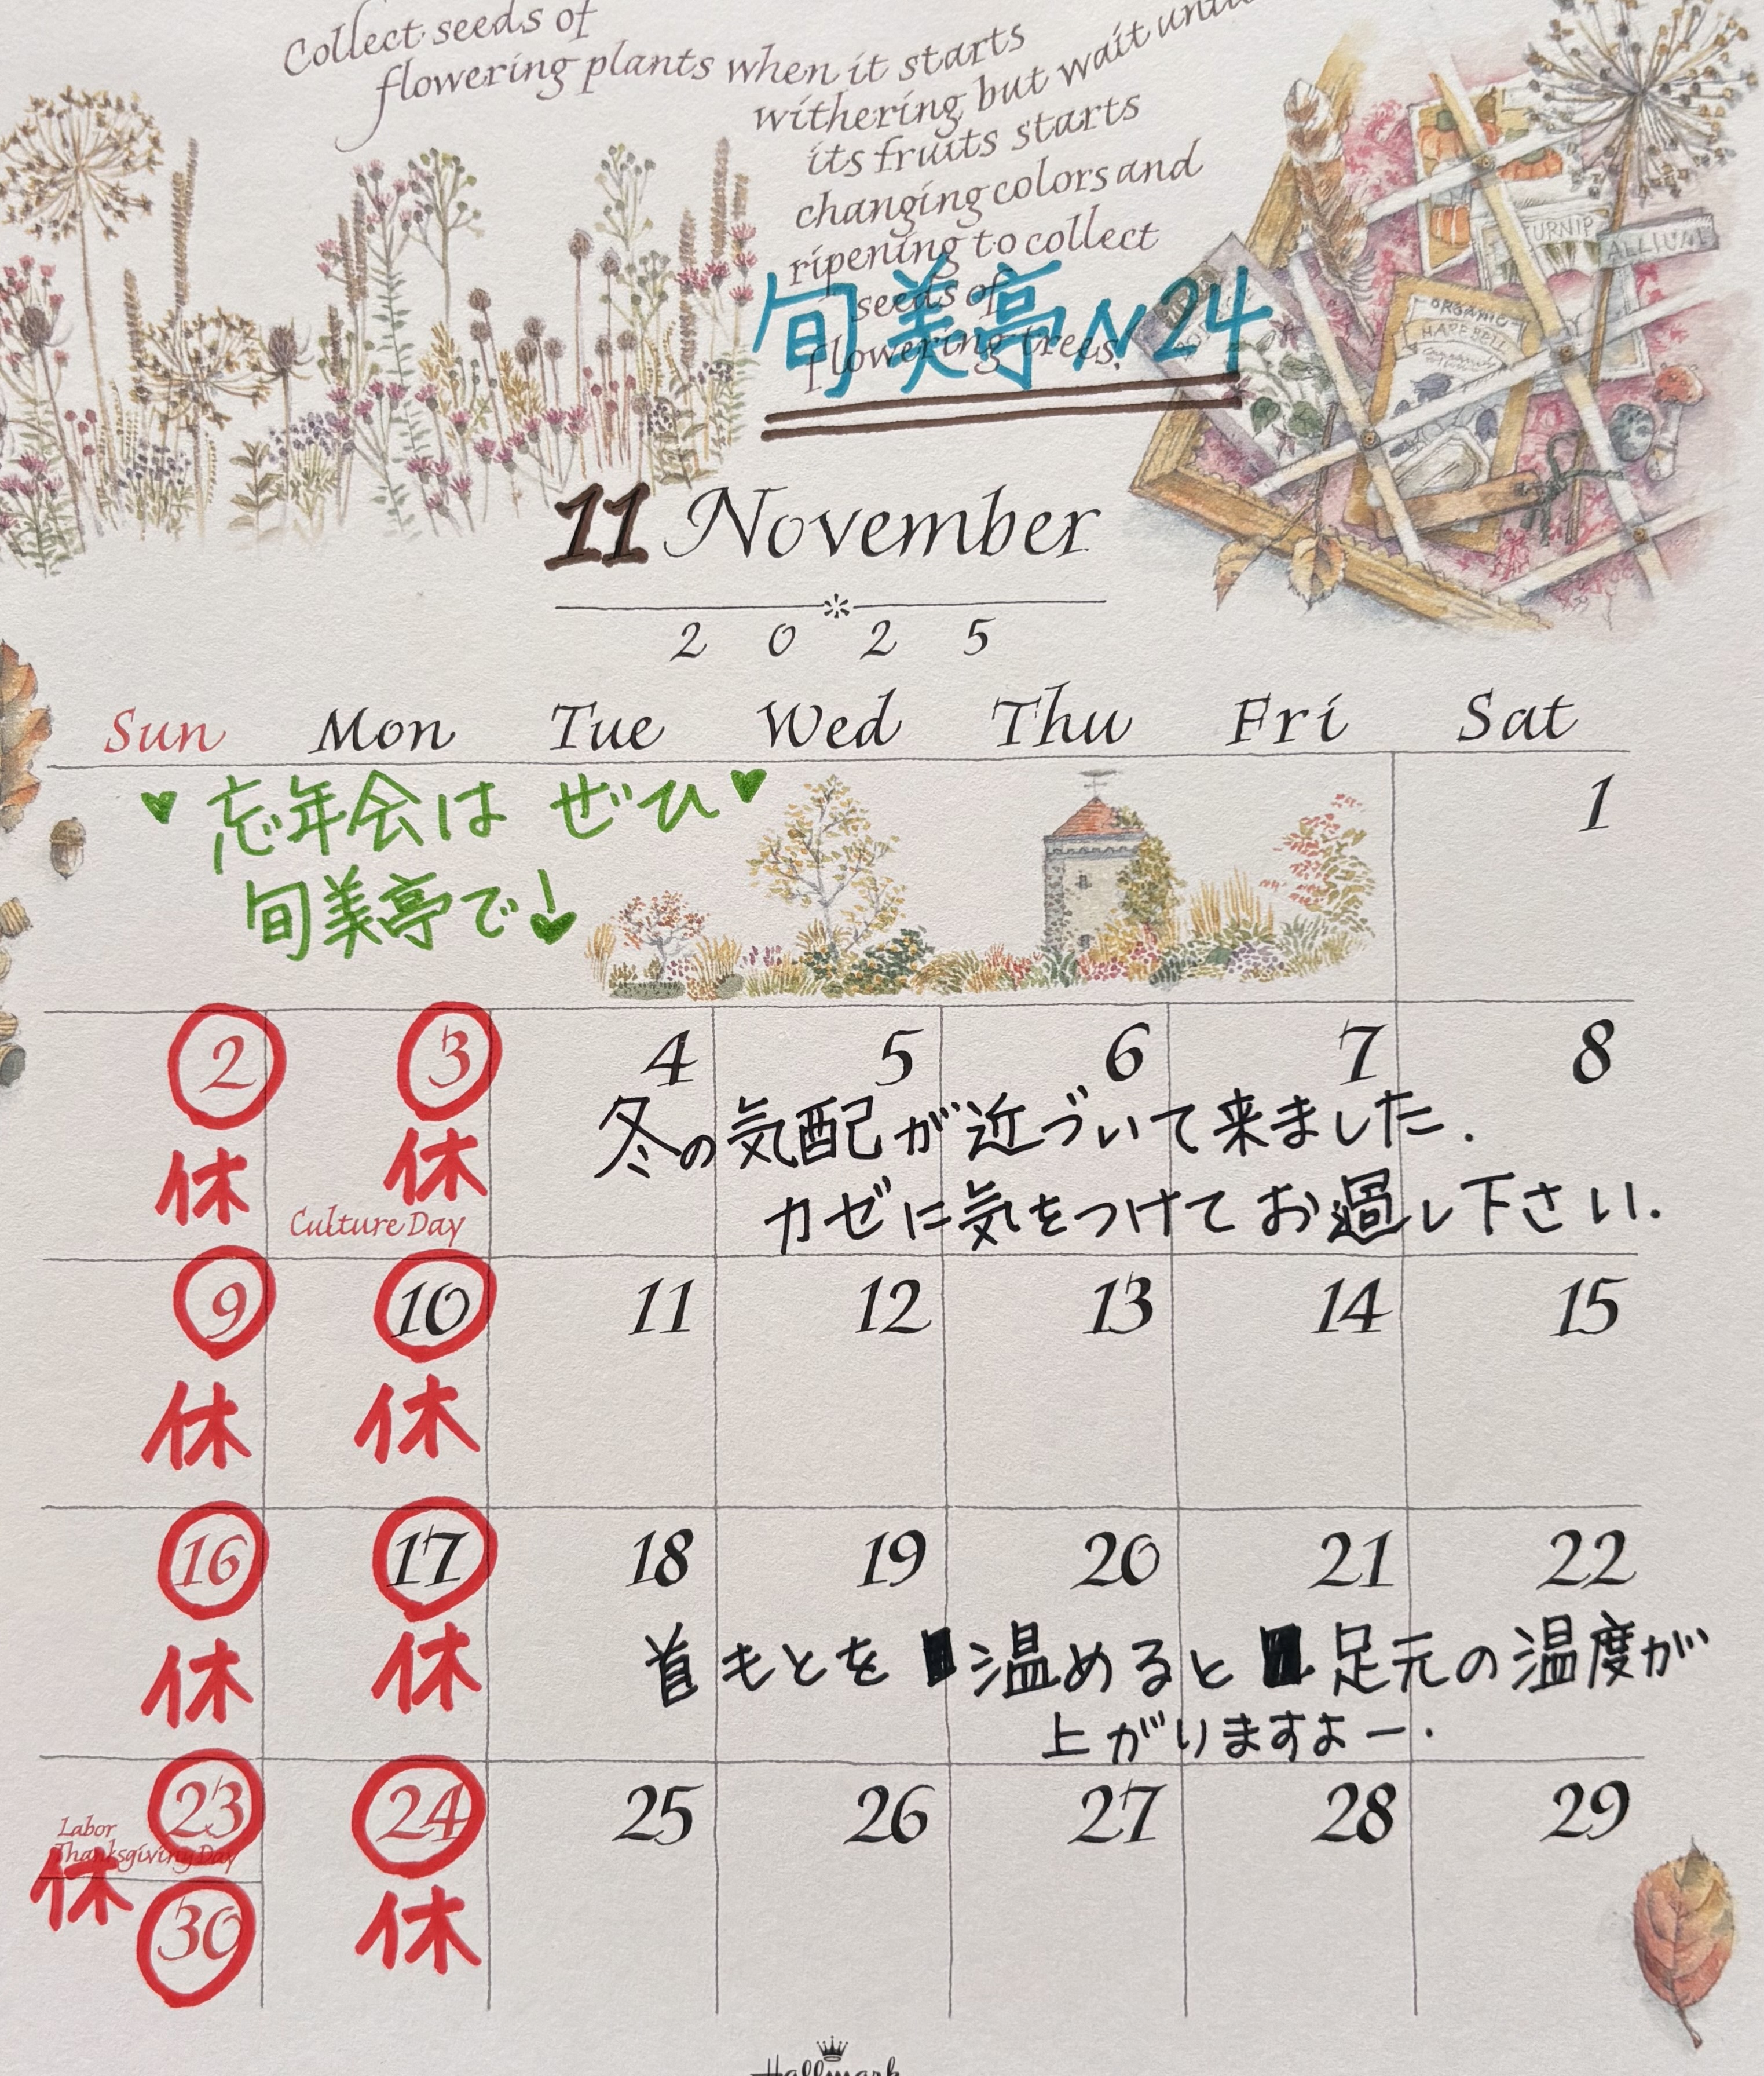 Collect seeds of
flowering plants when it starts
withering but wait until
its fruits starts
changing colors and
ripening to collect
seeds of
flowering trees.
旬美亭N24
TURNIP
ALLIUM
ORGANIC
11 November
2025
Sun Mon Tue Wed Thu Fri Sat
♥忘年会は ぜひ♥
旬美亭で
1
2 3 4 5 6 7 8
冬の気配が近づいて来ました.
休 休
カゼに気をつけてお過し下さい.
Culture Day
9 10 11 12 13 14 15
休 休
16 17 18 19 20 21 22
首もとを 温めると 足元の温度が
休 休
上がりますよー.
23 24 25 26 27 28 29
Labor
Thanksgiving Day
休
30
休
Hallmark